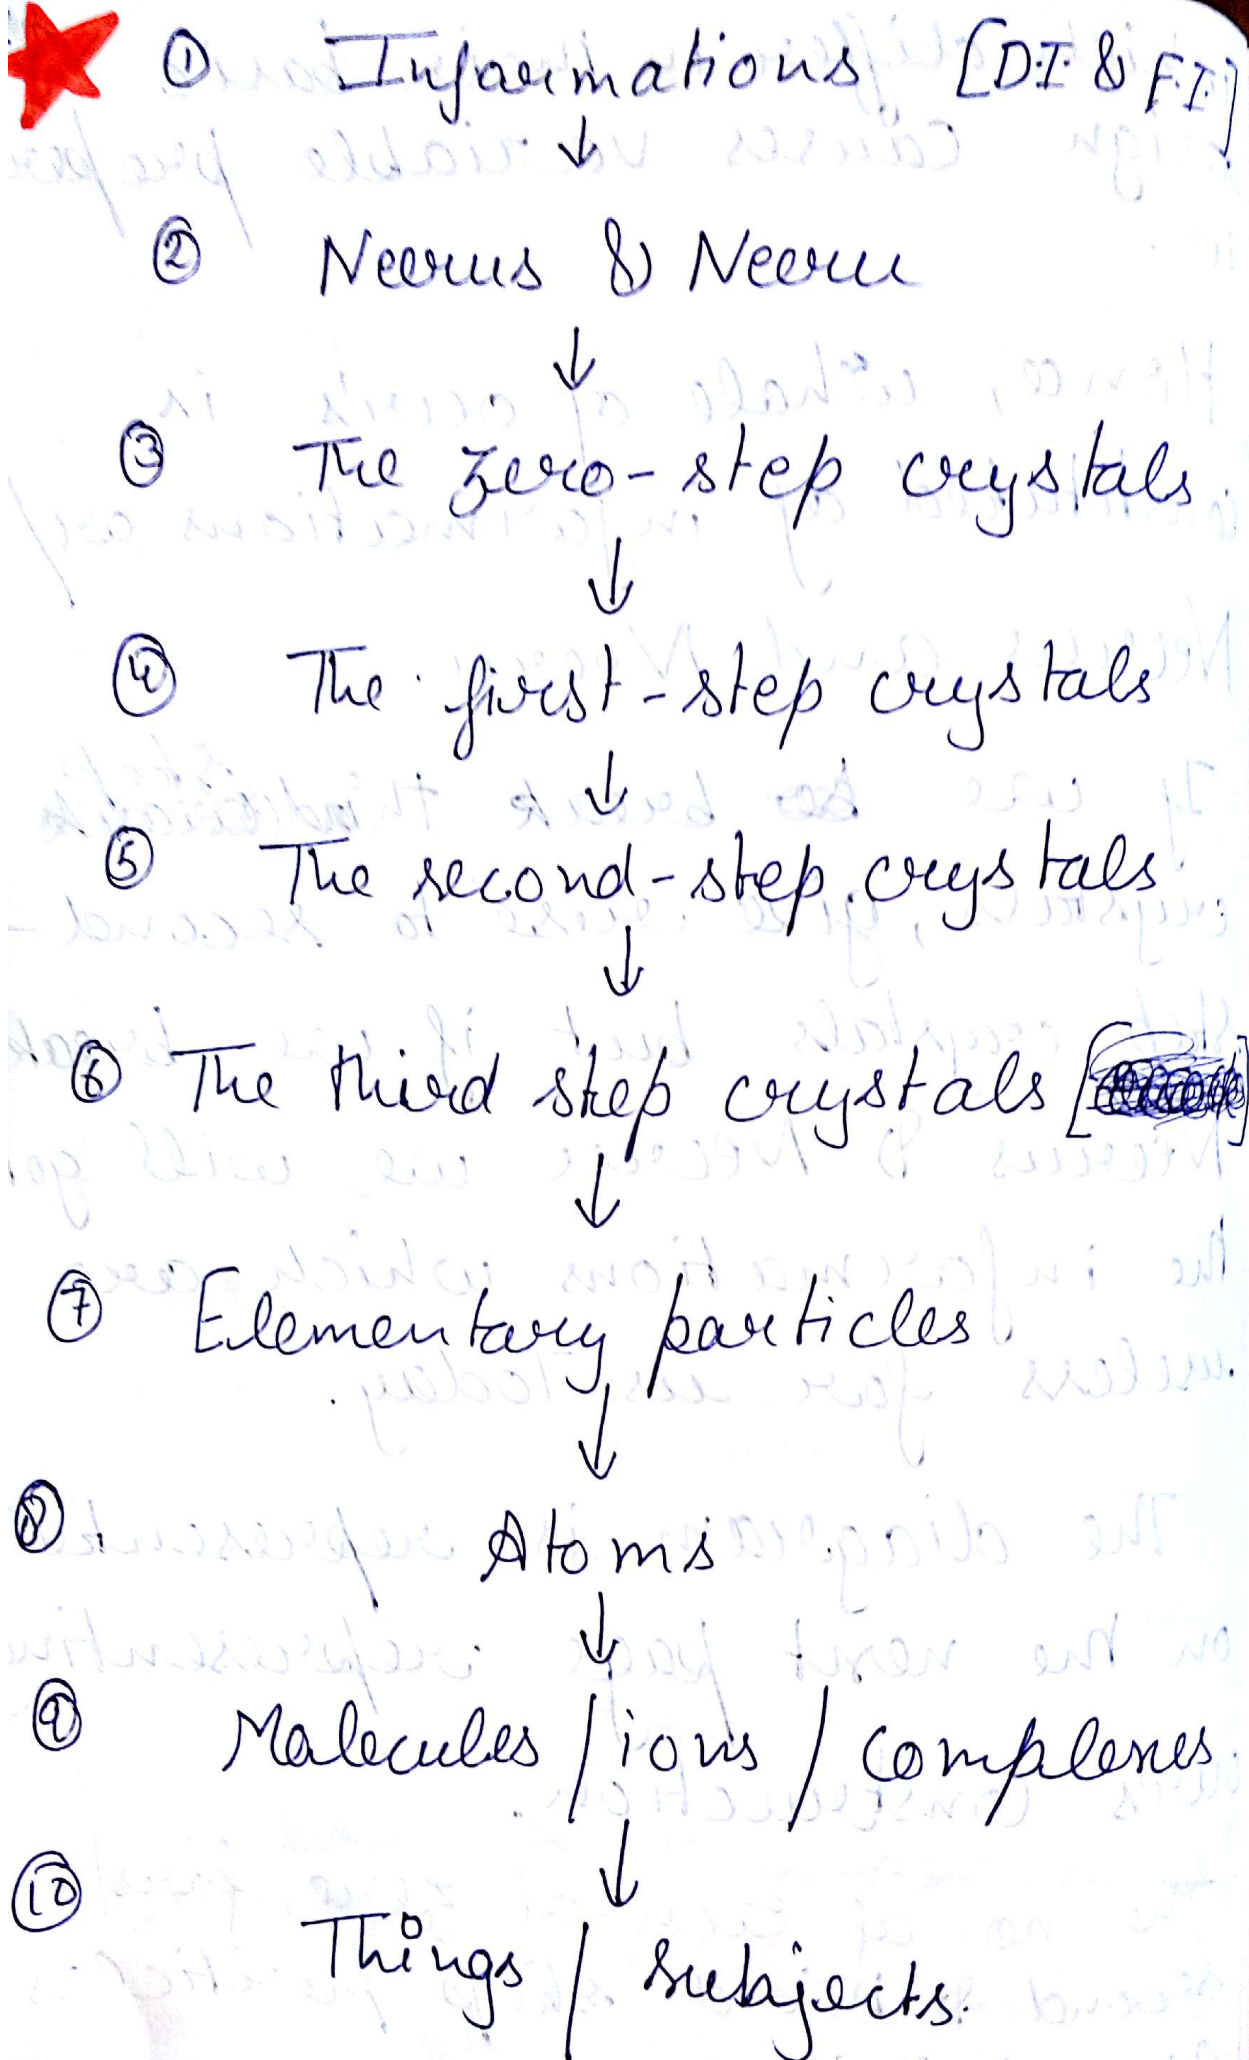 ① Informations [D.I & F.I]
↓
② Neerus & Neeru
↓
③ The zero-step crystals
↓
④ The first-step crystals
↓
⑤ The second-step crystals
↓
⑥ The third step crystals
↓
⑦ Elementary particles
↓
⑧ Atoms
↓
⑨ Molecules / ions / complexes
↓
⑩ Things / subjects.